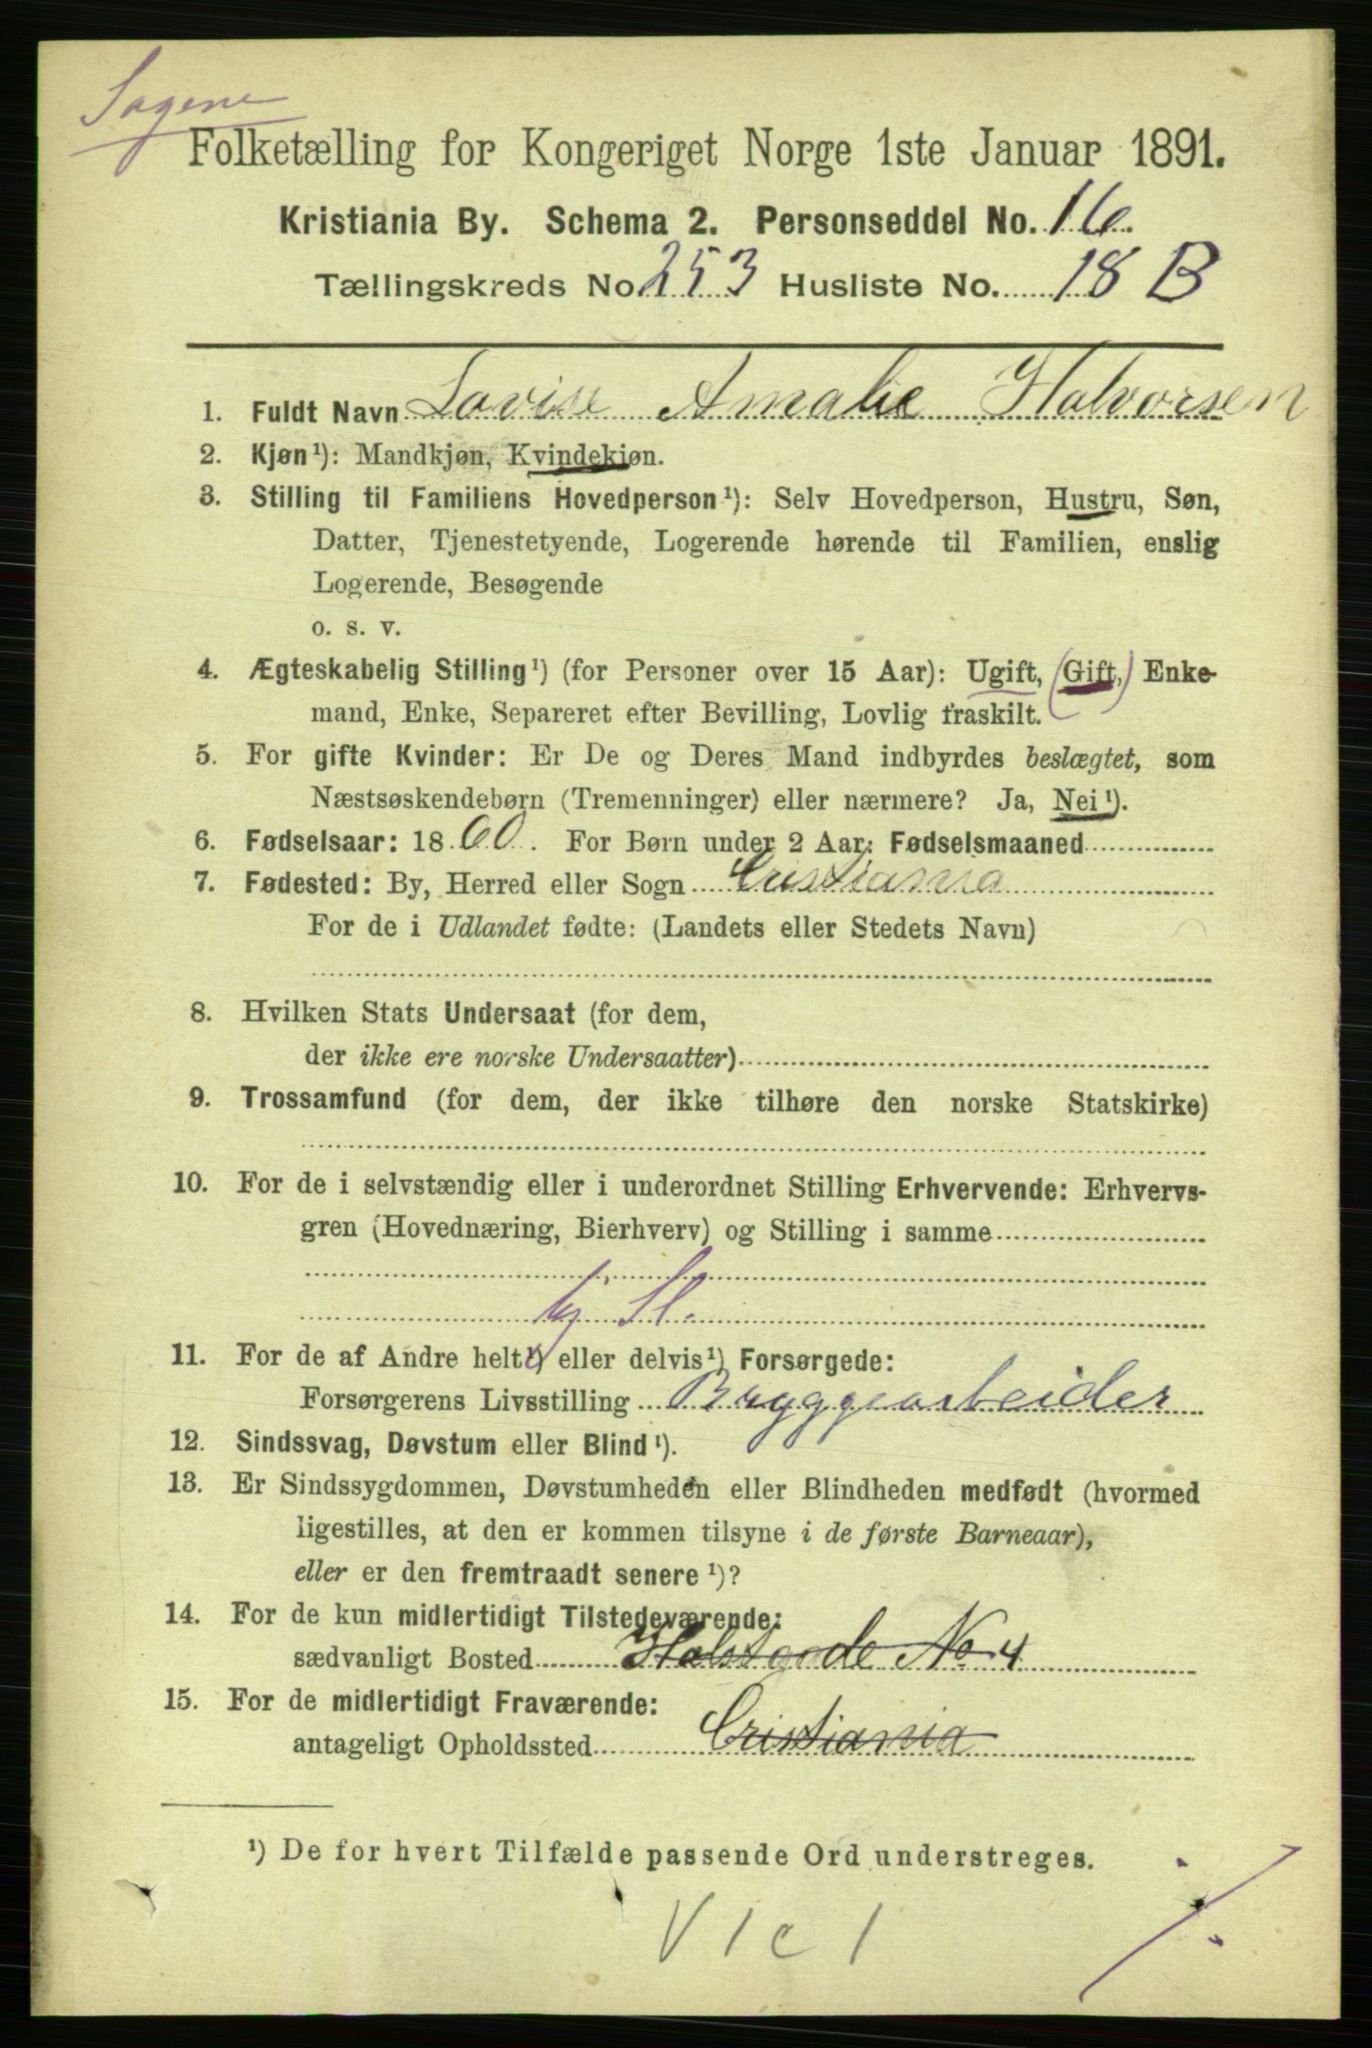 Sagene
Folketælling for Kongeriget Norge 1ste Januar 1891.
Kristiania By. Schema 2. Personseddel No. 16.
Tællingskreds No. 253 Husliste No. 18 B
1. Fuldt Navn Lovise Amalie Halvorsen
2. Kjøn¹): Mandkjøn, Kvindekjøn.
3. Stilling til Familiens Hovedperson¹): Selv Hovedperson, Hustru, Søn,
Datter, Tjenestetyende, Logerende hørende til Familien, enslig
Logerende, Besøgende
o. s. v.
4. Ægteskabelig Stilling¹) (for Personer over 15 Aar): Ugift, (Gift,) Enke-
mand, Enke, Separeret efter Bevilling, Lovlig fraskilt.
5. For gifte Kvinder: Er De og Deres Mand indbyrdes beslægtet, som
Næstsøskendebørn (Tremenninger) eller nærmere? Ja, Nei¹).
6. Fødselsaar: 1860. For Børn under 2 Aar: Fødselsmaaned
7. Fødested: By, Herred eller Sogn Cristiania
For de i Udlandet fødte: (Landets eller Stedets Navn)
8. Hvilken Stats Undersaat (for dem,
der ikke ere norske Undersaatter)
9. Trossamfund (for dem, der ikke tilhøre den norske Statskirke)
10. For de i selvstændig eller i underordnet Stilling Erhvervende: Erhvervs-
gren (Hovednæring, Bierhverv) og Stilling i samme
11. For de af Andre helt¹) eller delvis¹) Forsørgede:
Forsørgerens Livsstilling Bryggearbeider
12. Sindssvag, Døvstum eller Blind¹).
13. Er Sindssygdommen, Døvstumheden eller Blindheden medfødt (hvormed
ligestilles, at den er kommen tilsyne i de første Barneaar),
eller er den fremtraadt senere¹)?
14. For de kun midlertidigt Tilstedeværende:
sædvanligt Bosted Holstgade No 4
15. For de midlertidigt Fraværende:
antageligt Opholdssted Cristiania
¹) De for hvert Tilfælde passende Ord understreges.
V 1 c 1